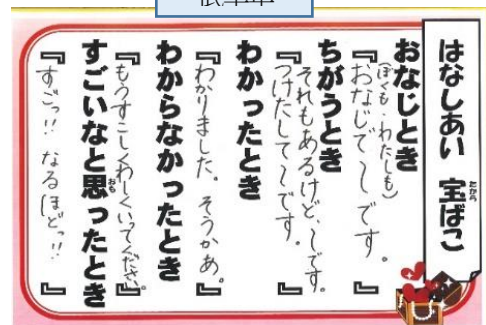 はなしあい 宝ばこ
おなじとき
(ぼくも、わたしも)
『おなじで〜です。』
ちがうとき
それもあるけど、〜です。
『つけたして〜です。』
わかったとき
『わかりました。そうかあ。』
わからなかったとき
『もうすこしくわしくいってください。』
すごいなと思ったとき
『すごっ!! なるほどっ!!』